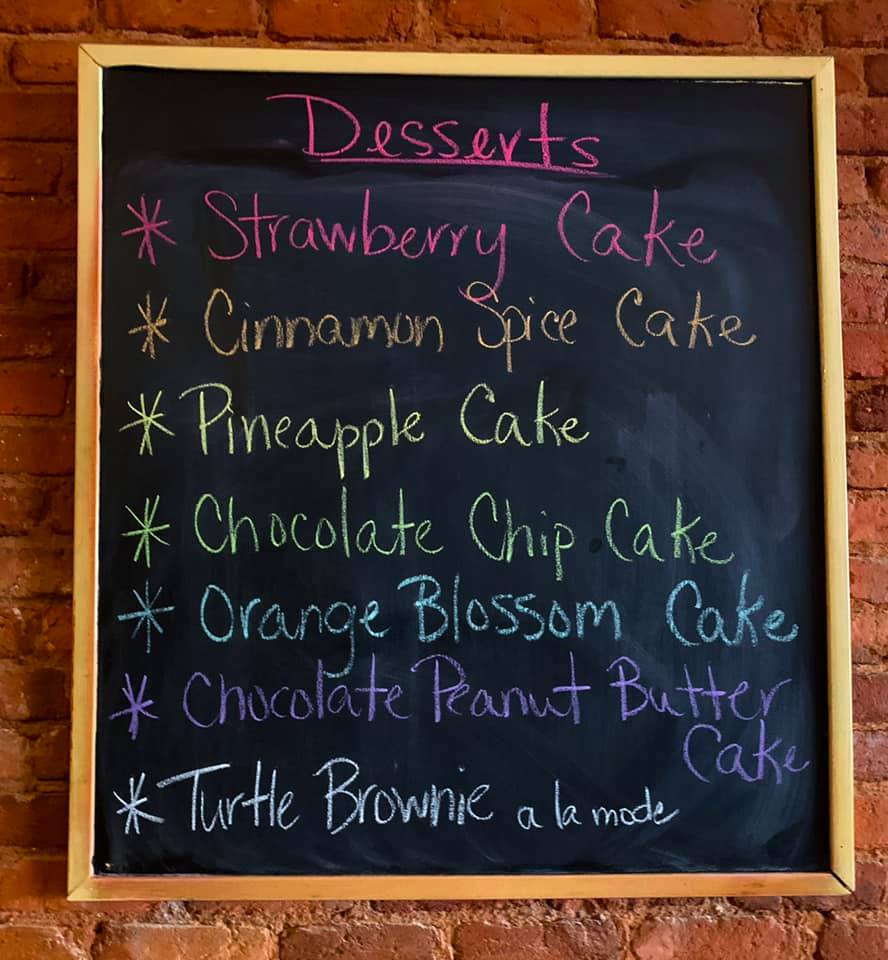 Desserts
* Strawberry Cake
* Cinnamon Spice Cake
* Pineapple Cake
* Chocolate Chip Cake
* Orange Blossom Cake
* Chocolate Peanut Butter
Cake
* Turtle Brownie a la mode